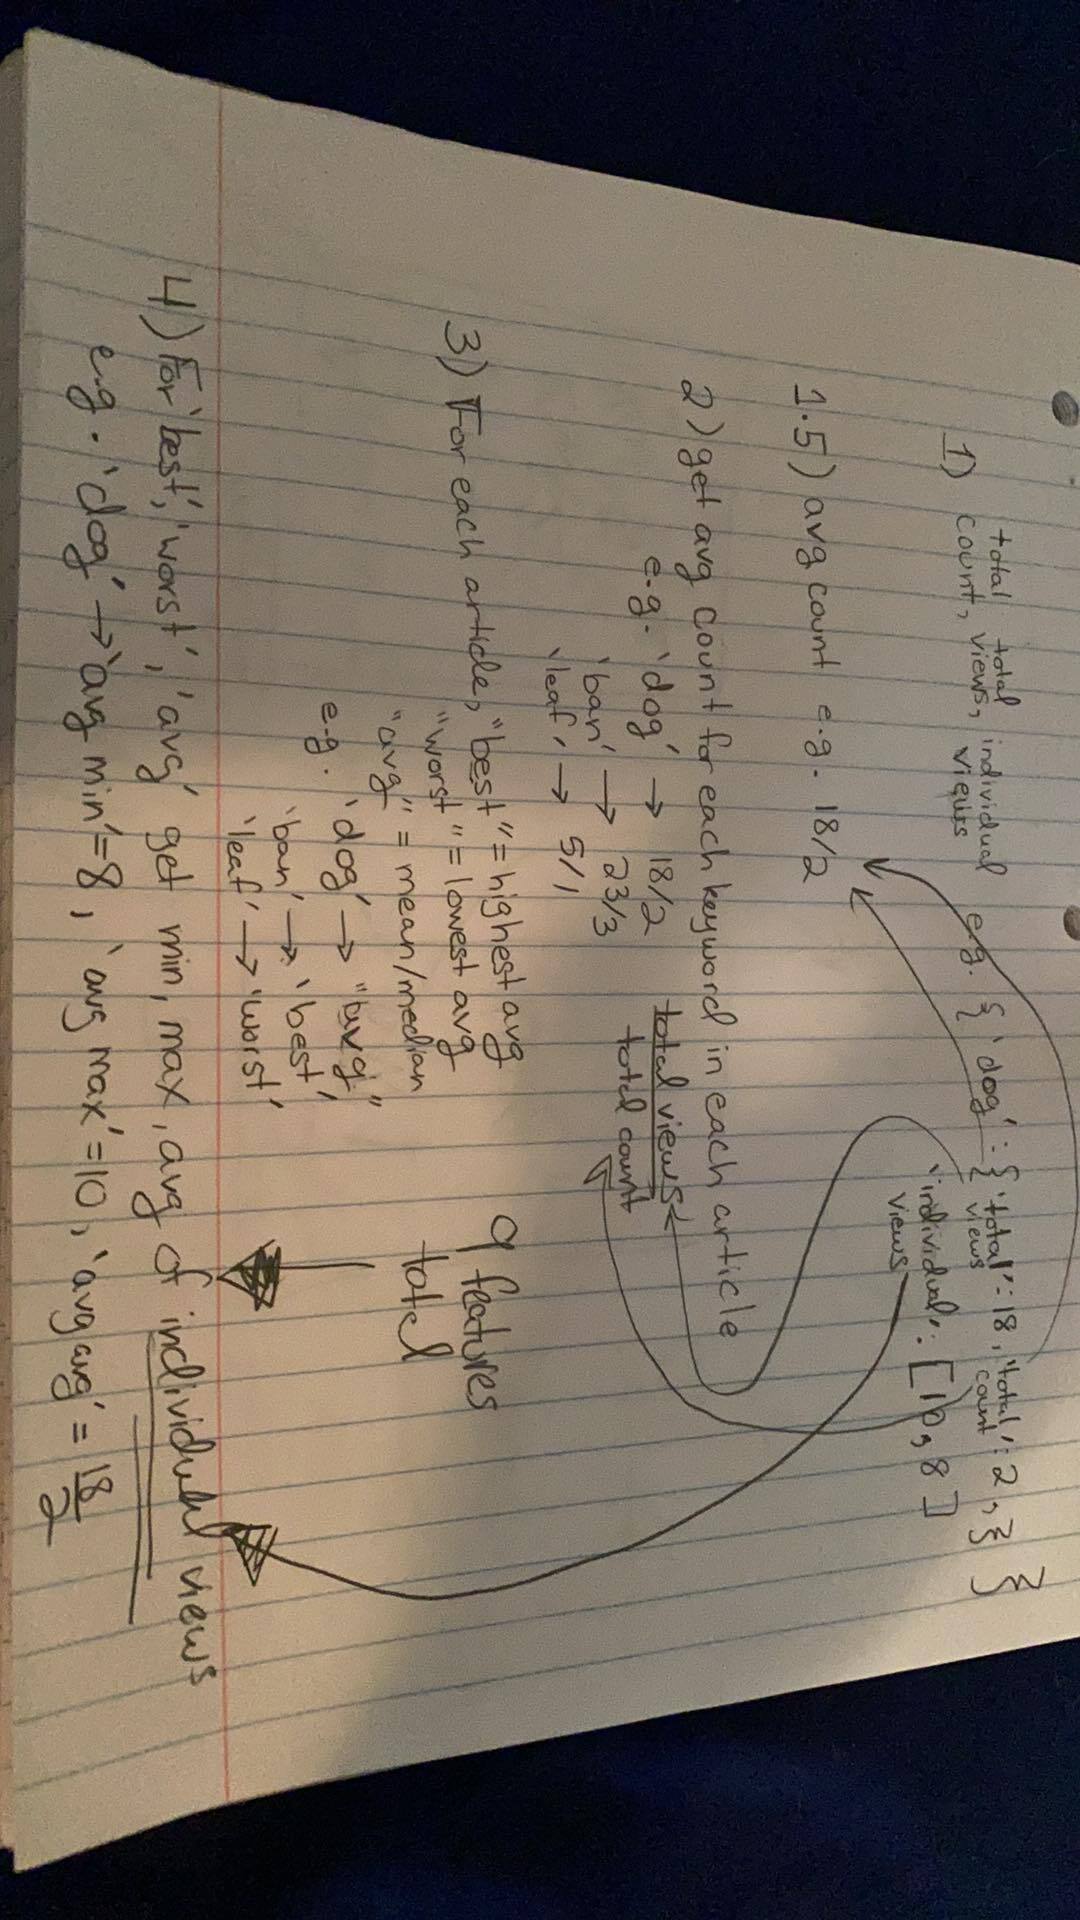 1) total count, total views, individual views e.g. { 'dog' : { 'total views' : 18, 'total count' : 2, } }
'individual views' : [10, 8]
1.5) avg count e.g. 18/2
2) get avg count for each keyword in each article
e.g. 'dog' → 18/2
total views
total count
'ban' → 23/3
'leaf' → 5/1
3) For each article, "best" = highest avg
"worst" = lowest avg
"avg" = mean/median
9 features
total
e.g. 'dog' → "avg"
'ban' → 'best'
'leaf' → 'worst'
4) For 'best', 'worst', 'avg' get min, max, avg of individual views
e.g. 'dog' → 'avg min' = 8, 'avg max' = 10, 'avg avg' = 18/2